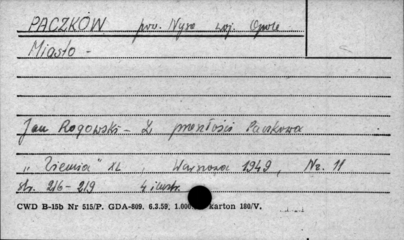 PACZKÓW pow. Nysa woj. Opole
Miasto -
Jan Rogowski - Z przeszłości Paczkowa
"Ziemia" XL, Warszawa 1949, Nr. 11
str. 216-219 4 ilustr.
CWD B-15b Nr 515/P. GDA-809. 6.3.59. 1.000. karton 180/V.